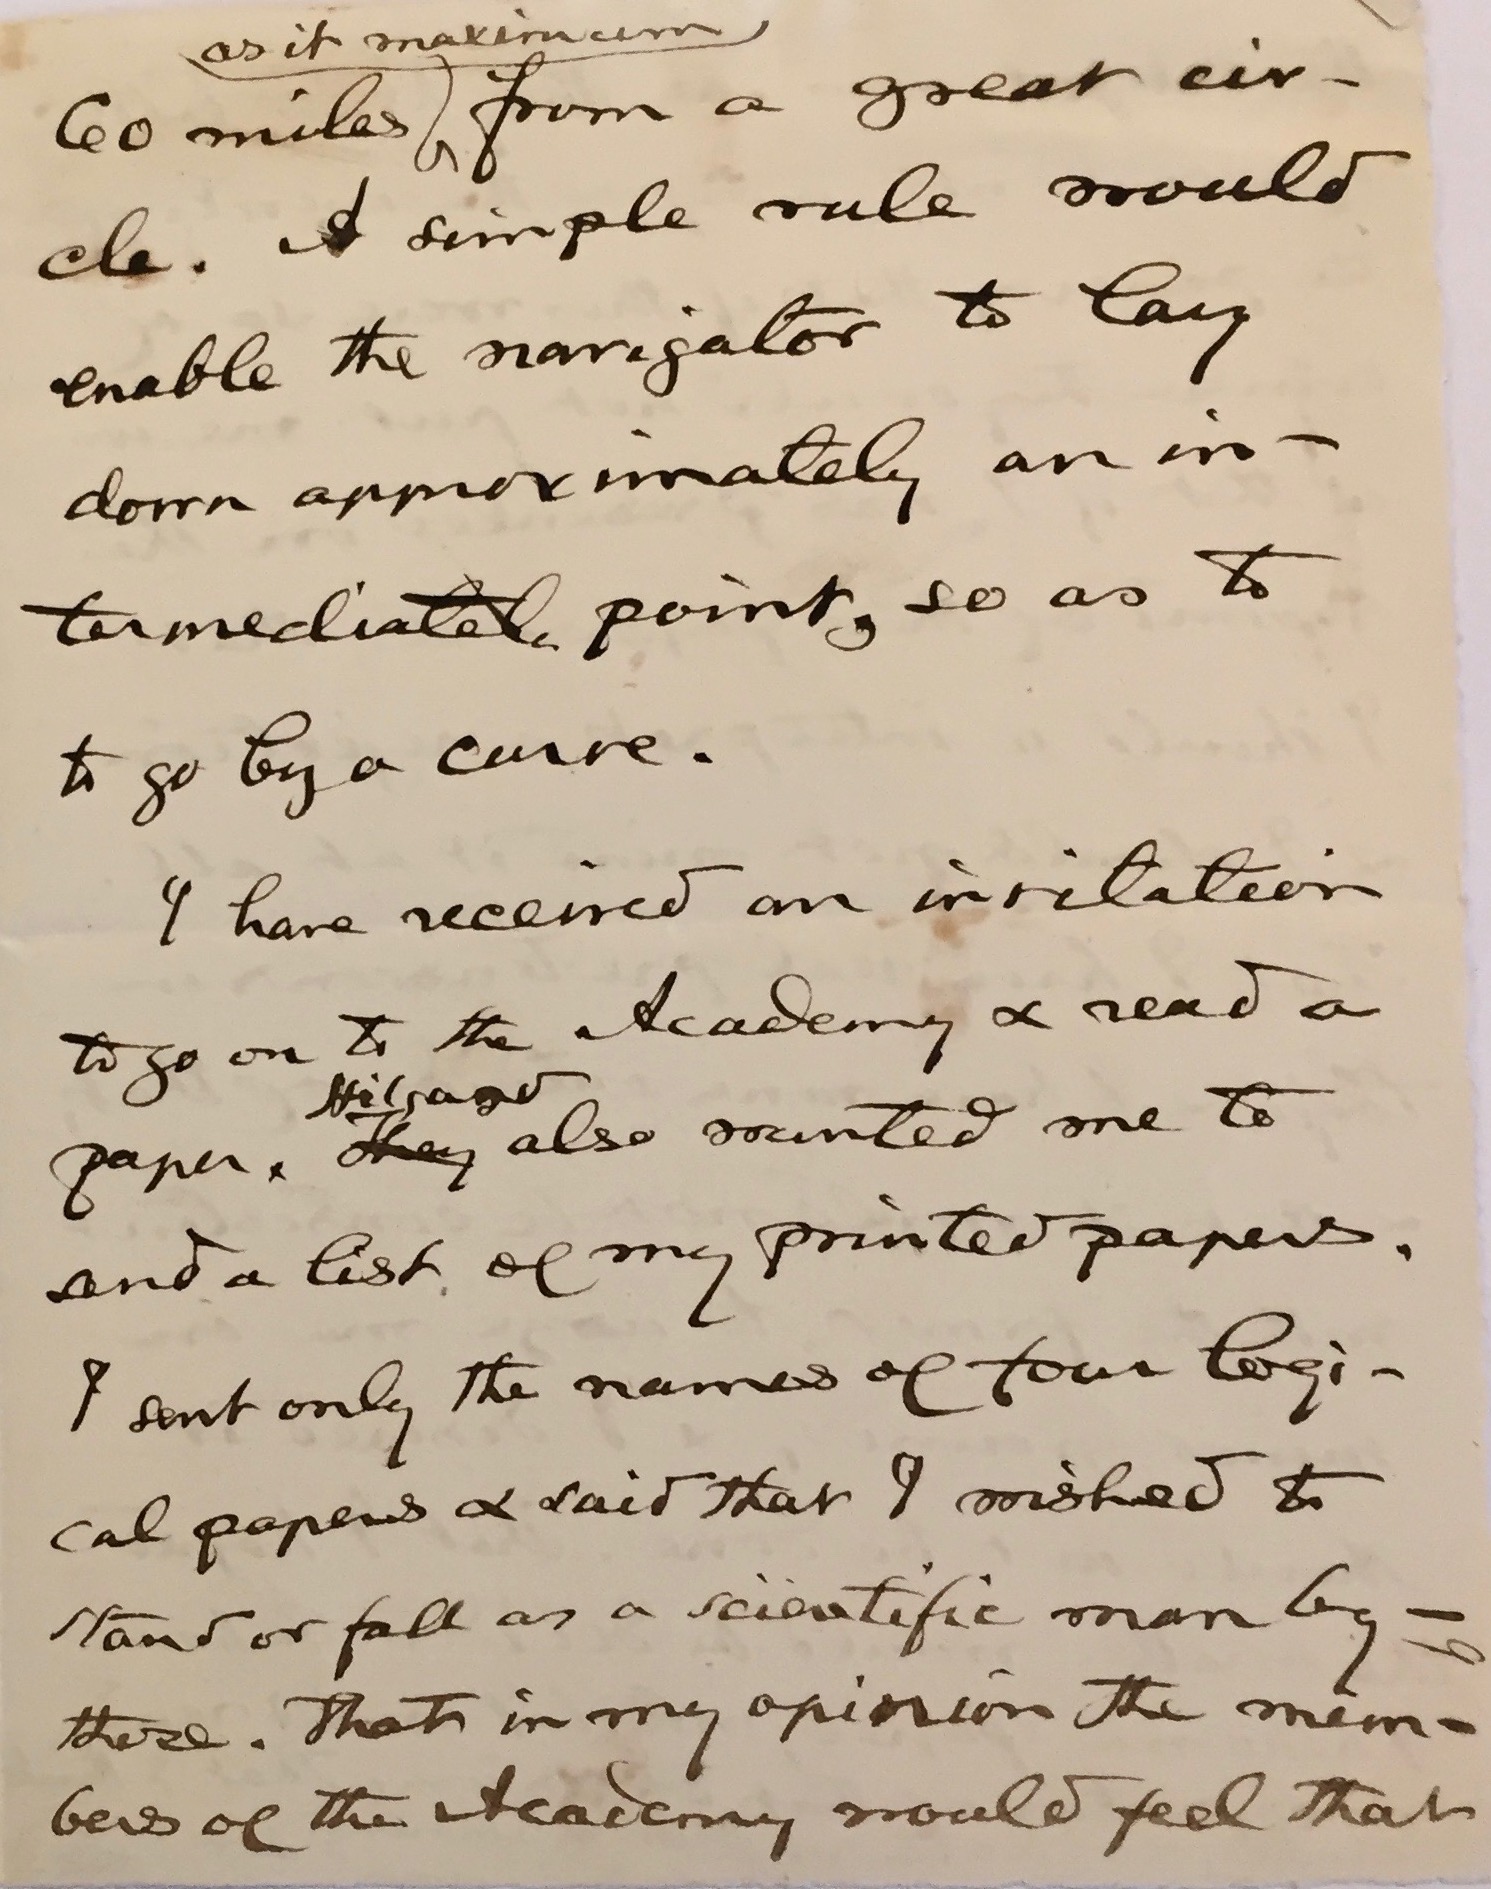 as it maximum
60 miles from a great cir-
cle. A simple rule would
enable the navigator to lay
down approximately an in-
termediate point, so as to
to go by a curve.
I have received an invitation
to go on to the Academy & read a
Hilgard
paper. They also wanted me to
send a list of my printed papers.
I sent only the names of four logi-
cal papers & said that I wished to
stand or fall as a scientific man by
these. That in my opinion the mem-
bers of the Academy would feel that